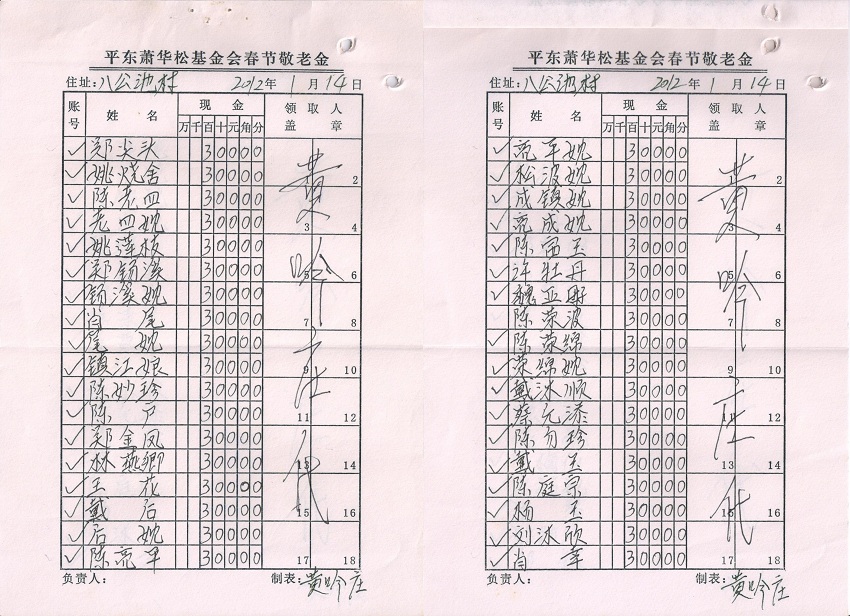 平东萧华松基金会春节敬老金
住址:八公池村 2012年1月14日
账号 姓名 现金 领取人盖章
万 千 百 十 元 角 分
✓ 郑尖头 30000
✓ 姚烧舍 30000 2
✓ 陈老四 30000
✓ 老四婏 30000 3 4
✓ 姚莲枝 30000
✓ 郑锁溪 30000 5 6
✓ 锁溪婏 30000
✓ 肖尾 30000 7 8
✓ 尾婏 30000
✓ 镇江娘 30000 9 10
✓ 陈妙珍 30000
✓ 陈户 30000 11 12
✓ 郑金凤 30000
✓ 林燕卿 30000 13 14
✓ 王花 30000
✓ 戴后 30000 15 16
✓ 后婏 30000
✓ 陈亮平 30000 17 18
黄吟庄代
负责人: 制表:黄吟庄
平东萧华松基金会春节敬老金
住址:八公池村 2012年1月14日
账号 姓名 现金 领取人盖章
万 千 百 十 元 角 分
✓ 亮平婏 30000
✓ 松波婏 30000 2
✓ 成镇婏 30000
✓ 亮成婏 30000 3 4
✓ 陈富玉 30000
✓ 许牡丹 30000 5 6
✓ 魏亚 30000
✓ 陈荣波 30000 7 8
✓ 陈荣绵 30000
✓ 荣绵婏 30000 9 10
✓ 戴沐顺 30000
✓ 蔡元添 30000 12
✓ 陈有珍 30000
✓ 戴玉 30000 13 14
✓ 陈庭宗 30000
✓ 杨玉 30000 15 16
✓ 刘沐欣 30000
✓ 肖幸 30000 17 18
黄吟庄代
负责人: 制表:黄吟庄